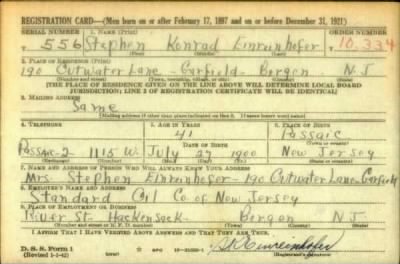 REGISTRATION CARD—(Men born on or after February 17, 1897 and on or before December 31, 1921)
SERIAL NUMBER 1. NAME (Print) ORDER NUMBER
556 Stephen Konrad Einreinhofer 10,334
(First) (Middle) (Last)
2. PLACE OF RESIDENCE (Print)
190 Outwater Lane - Garfield - Bergen N J
(Number and street) (Town, township, village, or city) (County) (State)
[THE PLACE OF RESIDENCE GIVEN ON THE LINE ABOVE WILL DETERMINE LOCAL BOARD
JURISDICTION; LINE 2 OF REGISTRATION CERTIFICATE WILL BE IDENTICAL]
3. MAILING ADDRESS
Same
(Mailing address if other than place indicated on line 2. If same insert word same)
4. TELEPHONE 5. AGE IN YEARS 6. PLACE OF BIRTH
41 Passaic
DATE OF BIRTH
Passaic-2 1115 W July 27 1900 New Jersey
(Exchange) (Number) (Mo.) (Day) (Yr.) (State or country)
7. NAME AND ADDRESS OF PERSON WHO WILL ALWAYS KNOW YOUR ADDRESS
Mrs. Stephen Einreinhofer - 190 Outwater Lane - Garfield
8. EMPLOYER'S NAME AND ADDRESS
Standard Oil Co of New Jersey
9. PLACE OF EMPLOYMENT OR BUSINESS
River St. Hackensack - Bergen N J
(Number and street or R. F. D. number) (Town) (County) (State)
I AFFIRM THAT I HAVE VERIFIED ABOVE ANSWERS AND THAT THEY ARE TRUE.
D. S. S. Form 1
(Revised 1-1-42) GPO S K Einreinhofer
(Registrant's signature)